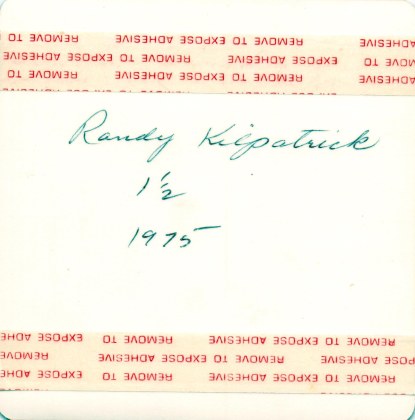 REMOVE TO EXPOSE ADHESIVE REMOVE TO
ADHESIVE REMOVE TO EXPOSE ADHESIVE REMOVE
REMOVE TO EXPOSE ADHESIVE REMOVE TO
Randy Kilpatrick
1 1/2
1975
REMOVE TO EXPOSE ADHESIVE REMOVE TO EXPOSE
REMOVE TO EXPOSE ADHESIVE REMOVE
REMOVE TO EXPOSE ADHESIVE REMOVE TO EXPOSE